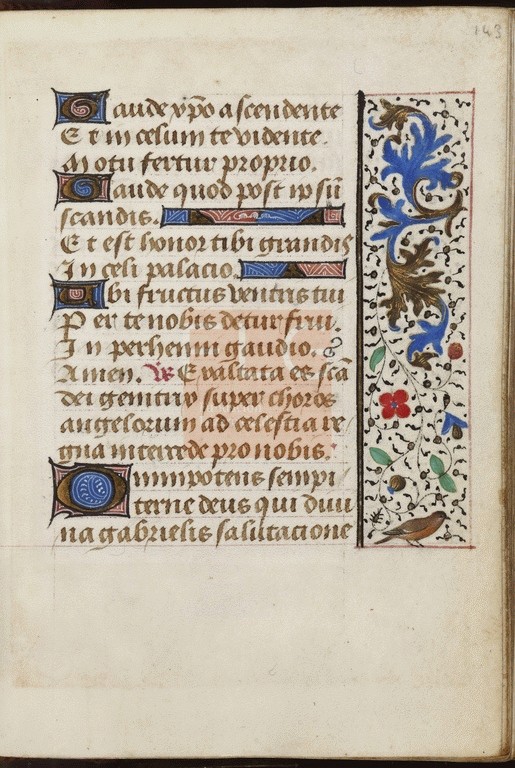 143
Gaude xpo ascendente
Et in celum te vidente.
Motu fertur proprio.
Gaude quod post ipsū
scandis.
Et est honor tibi grandis
In celi palacio.
Vbi fructus ventris tui
Per te nobis detur frui.
In perhenni gaudio.
Amen. ℣ Exaltata es scā
dei genitrix super choros
angelorum ad celestia re
gna intercede pro nobis.
Omnipotens sempi
terne deus qui diui
na gabrielis salutacione